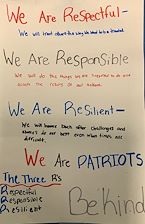 We Are Respectful-
We will treat others the way we want to be treated.
We Are Responsible
We will do the things we are supposed to do and
accept the results of our actions.
We Are Resilient-
We will bounce back after challenges and
always do our best even when things are
difficult.
We Are PATRIOTS
The Three R's
Respectful
Responsible
Resilient
Be Kind